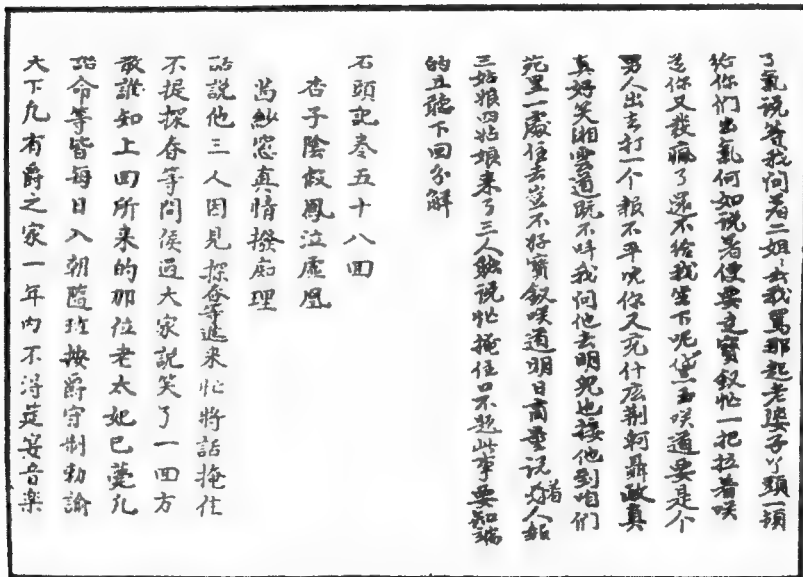 了氣说等我问着二姐〻去我骂那起老婆子丫頭一頓
给你们出氣何如说着便要走寳釵忙一把拉着咲
道你又發瘋了還不给我坐下呢黛玉咲道要是个
男人出去打一个報不平児你又充什庅荆軻聶政真
真好笑湘雲道既不呌我问他去明児也接他到咱们
苑里一處住去豈不好寳釵咲道明日商量说着人報
三姑娘四姑娘来了三人聴说忙掩住口不题此事要知端
的且聴下回分解
石頭記卷五十八回
杏子陰假鳳泣虛凰
茜紗窓真情撥癡理
話說他三人因見探春等進来忙將話掩住
不提探春等問候過大家說笑了一回方
散誰知上回所来的那位老太妃已薨凡
誥命等皆每日入朝隨班按爵守制勅諭
天下凡有爵之家一年內不淂筵宴音楽